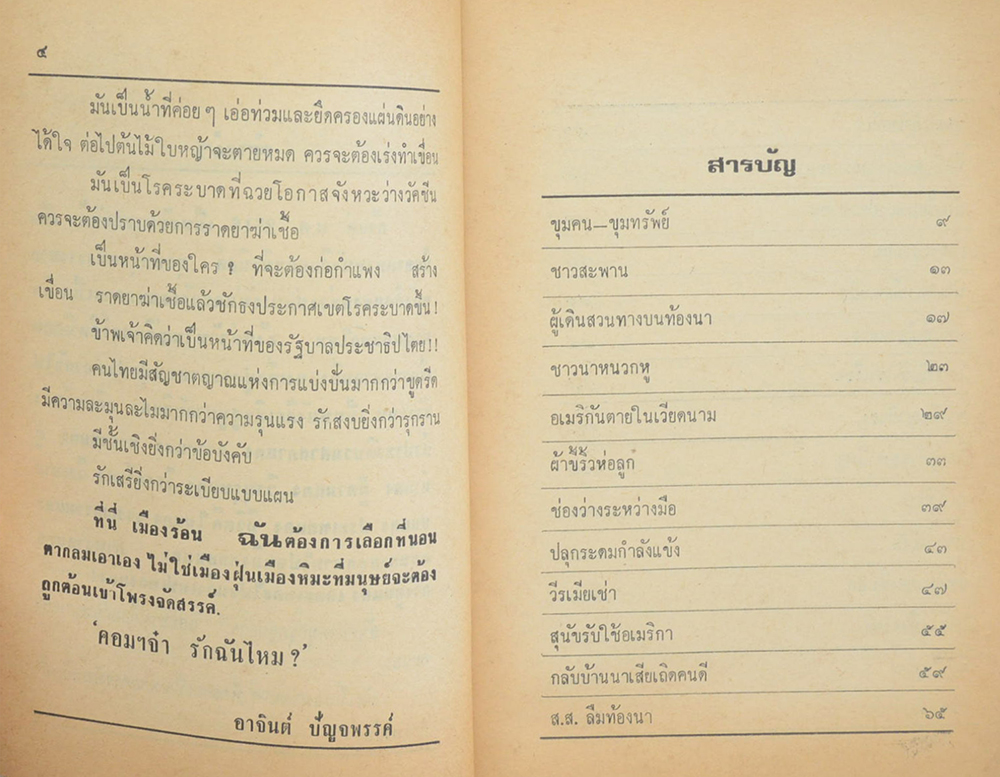 ๔
มันเป็นน้ำที่ค่อยๆ เอ่อท่วมและยึดครองแผ่นดินอย่าง
ได้ใจ ต่อไปต้นไม้ใบหญ้าจะตายหมด ควรจะต้องเร่งทำเขื่อน
มันเป็นโรคระบาดที่ฉวยโอกาสจังหวะว่างวัคซีน
ควรจะต้องปราบด้วยการราดยาฆ่าเชื้อ
เป็นหน้าที่ของใคร ? ที่จะต้องก่อกำแพง สร้าง
เขื่อน ราดยาฆ่าเชื้อแล้วชักธงประกาศเขตโรคระบาดขึ้น !
ข้าพเจ้าคิดว่าเป็นหน้าที่ของรัฐบาลประชาธิปไตย!!
คนไทยมีสัญชาตญาณแห่งการแบ่งปันมากกว่าขูดรีด
มีความละมุนละไมมากกว่าความรุนแรง รักสงบยิ่งกว่ารุกราน
มีชั้นเชิงยิ่งกว่าข้อบังคับ
รักเสรียิ่งกว่าระเบียบแบบแผน
ที่นี่ เมืองร้อน ฉันต้องการเลือกที่นอน
ตากลมเอาเอง ไม่ใช่เมืองฝุ่นเมืองหิมะที่มนุษย์จะต้อง
ถูกต้อนเข้าโพรงจัดสรรค์.
'คอมฯจ๋า รักฉันไหม ?'
อาจินต์ ปัญจพรรค์
สารบัญ
ขุมคน—ขุมทรัพย์ ๙
ชาวสะพาน ๑๓
ผู้เดินสวนทางบนท้องนา ๑๗
ชาวนาหนวกหู ๒๓
อเมริกันตายในเวียดนาม ๒๙
ผ้าขี้ริ้วห่อลูก ๓๓
ช่องว่างระหว่างมือ ๓๙
ปลุกระดมกำลังแข้ง ๔๓
วีรเมียเช่า ๔๗
สุนัขรับใช้อเมริกา ๕๕
กลับบ้านนาเสียเถิดคนดี ๕๙
ส.ส. ลืมท้องนา ๖๕